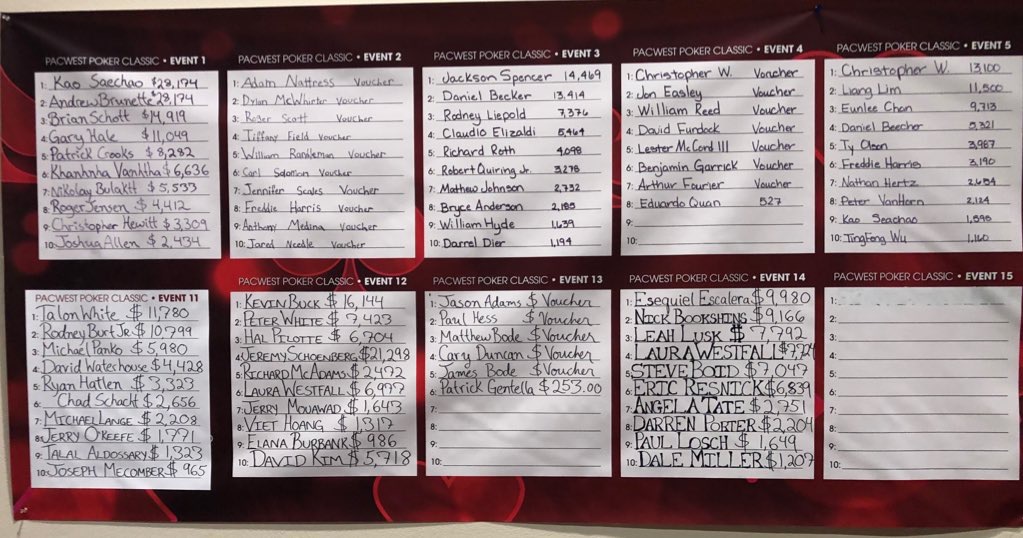 PACWEST POKER CLASSIC • EVENT 1
1: Kao Saechao $28,174
2: Andrew Brunette $28,174
3: Brian Schott $14,919
4: Gary Hale $11,049
5: Patrick Crooks $8,282
6: Khanhnha Vanhtha $6,636
7: Nikolay Bulakti $5,533
8: Roger Jensen $4,412
9: Christopher Hewitt $3,309
10: Joshua Allen $2,434
PACWEST POKER CLASSIC • EVENT 2
1: Adam Nattress Voucher
2: Dylan McWhirter Voucher
3: Roger Scott Voucher
4: Tiffany Field Voucher
5: William Rankleman Voucher
6: Carl Solomon Voucher
7: Jennifer Scales Voucher
8: Freddie Harris Voucher
9: Anthony Medina Voucher
10: Jared Neeble Voucher
PACWEST POKER CLASSIC • EVENT 3
1: Jackson Spencer 14,469
2: Daniel Becker 13,414
3: Rodney Liepold 7,376
4: Claudio Elizaldi 5,464
5: Richard Roth 4,098
6: Robert Quiring Jr. 3,278
7: Mathew Johnson 2,732
8: Bryce Anderson 2,185
9: William Hyde 1,639
10: Darrel Dier 1,194
PACWEST POKER CLASSIC • EVENT 4
1: Christopher W. Voucher
2: Jon Easley Voucher
3: William Reed Voucher
4: David Furdock Voucher
5: Lester McCord III Voucher
6: Benjamin Garrick Voucher
7: Arthur Fourier Voucher
8: Eduardo Quan 527
9:
10:
PACWEST POKER CLASSIC • EVENT 5
1: Christopher W. 13,100
2: Liang Lim 11,500
3: Eunlee Chon 9,713
4: Daniel Beecher 5,321
5: Ty Olson 3,987
6: Freddie Harris 3,190
7: Nathan Hertz 2,654
8: Peter VanHorn 2,124
9: Kao Seachao 1,595
10: TingFeng Wu 1,160
PACWEST POKER CLASSIC • EVENT 11
1: Talon White $11,780
2: Rodney Burt Jr $10,799
3: Michael Panko $5,980
4: David Watechouse $4,428
5: Ryan Hatlen $3,323
6: Chad Schacht $2,656
7: Michael Lange $2,208
8: Jerry O'Keefe $1,771
9: Talal Aldossary $1,323
10: Joseph Mecomber $965
PACWEST POKER CLASSIC • EVENT 12
1: Kevin Buck $16,144
2: Peter White $7,423
3: Hal Pilotte $6,704
4: Jeremy Schoenberg $21,298
5: Richard McAdams $2,472
6: Laura Westfall $6,977
7: Jerry Mouawad $1,643
8: Viet Hoang $1,317
9: Elana Burbank $986
10: David Kim $5,718
PACWEST POKER CLASSIC • EVENT 13
1: Jason Adams $ Voucher
2: Paul Hess $ Voucher
3: Matthew Bode $ Voucher
4: Cary Duncan $ Voucher
5: James Bode $ Voucher
6: Patrick Gentella $253.00
7:
8:
9:
10:
PACWEST POKER CLASSIC • EVENT 14
1: Esequiel Escalera $9,980
2: Nick Bookshins $9,166
3: Leah Lusk $7,792
4: Laura Westfall $7,724
5: Steve Boid $7,047
6: Eric Resnick $6,839
7: Angela Tate $2,751
8: Darren Porter $2,204
9: Paul Losch $1,649
10: Dale Miller $1,207
PACWEST POKER CLASSIC • EVENT 15
1:
2:
3:
4:
5:
6:
7:
8:
9:
10: